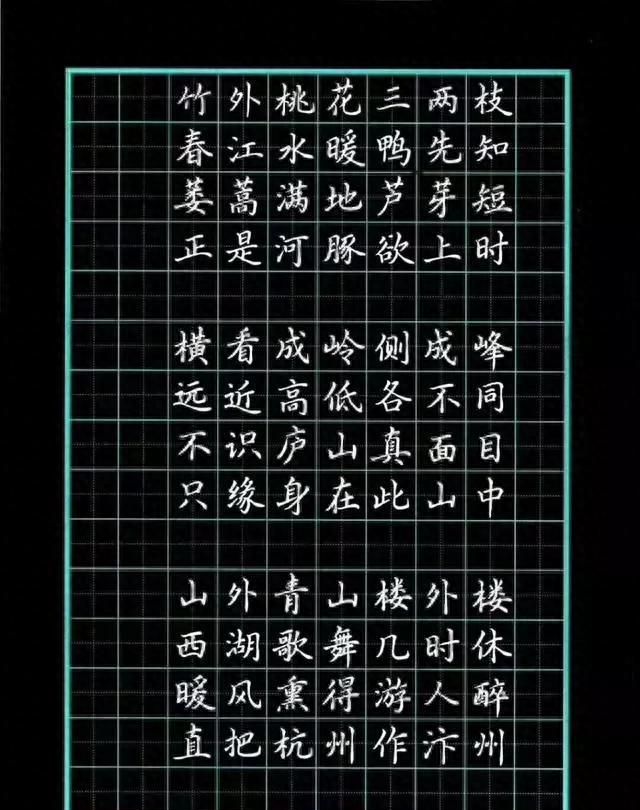 竹外桃花三两枝
春江水暖鸭先知
蒌蒿满地芦芽短
正是河豚欲上时
横看成岭侧成峰
远近高低各不同
不识庐山真面目
只缘身在此山中
山外青山楼外楼
西湖歌舞几时休
暖风熏得游人醉
直把杭州作汴州